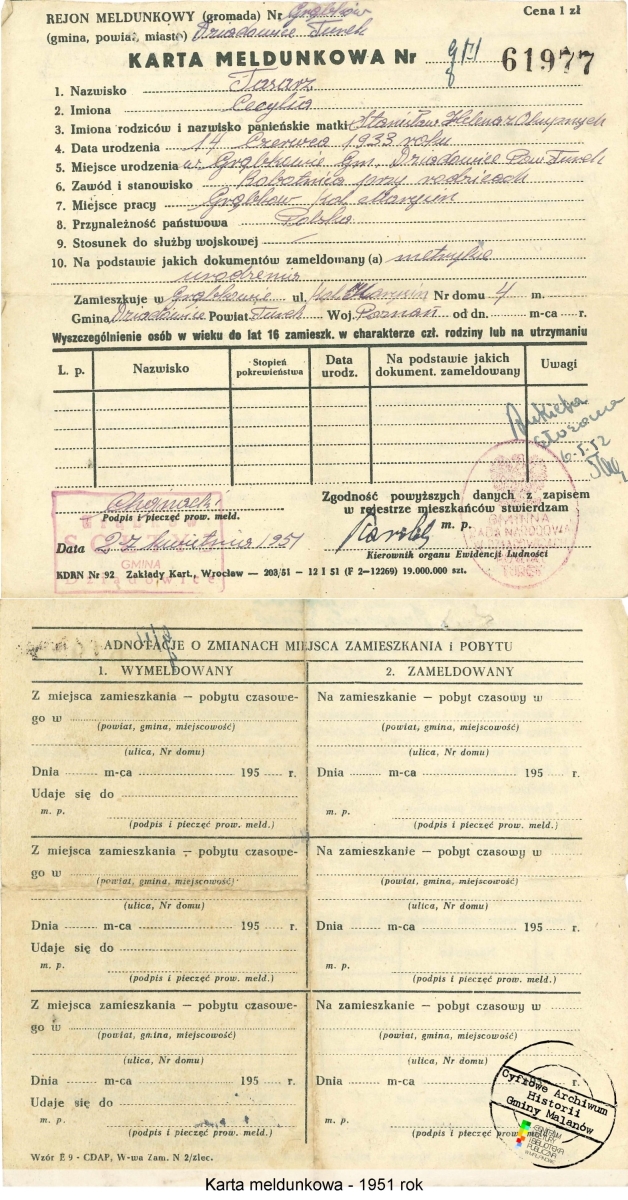 REJON MELDUNKOWY (gromada) Nr Grąbków
(gmina, powiat, miasto) Dziadowice Turek
Cena 1 zł
KARTA MELDUNKOWA Nr 61977
1. Nazwisko Tasarz
2. Imiona Cecylia
3. Imiona rodziców i nazwisko panieńskie matki Stanisław Helena z
4. Data urodzenia 14 Czerwca 1933 roku
5. Miejsce urodzenia w Grąbkowie Gm. Dziadowice Pow Turek
6. Zawód i stanowisko Robotnica przy rodzicach
7. Miejsce pracy Grąbków
8. Przynależność państwowa Polska
9. Stosunek do służby wojskowej
10. Na podstawie jakich dokumentów zameldowany (a) metryka
urodzenia
Zamieszkuje w Grąbkowie ul. Nr domu 4 m.
Gmina Dziadowice Powiat Turek Woj. Poznań od dn. m-ca r.
Wyszczególnienie osób w wieku do lat 16 zamieszk. w charakterze czł. rodziny lub na utrzymaniu
L. p. Nazwisko Stopień pokrewieństwa Data urodz. Na podstawie jakich dokument. zameldowany Uwagi
Ankieta
złożona
Zgodność powyższych danych z zapisem
w rejestrze mieszkańców stwierdzam
Chojnacki
Podpis i pieczęć prow. meld.
m. p.
GMINNA
RADA NARODOWA
Data 27 kwietnia 1951
Kierownik organu Ewidencji Ludności
GMINA
KDRN Nr 92 Zakłady Kart., Wrocław — 203/51 — 12 I 51 (F 2—12269) 19.000.000 szt.
ADNOTACJE O ZMIANACH MIEJSCA ZAMIESZKANIA i POBYTU
1. WYMELDOWANY
2. ZAMELDOWANY
Z miejsca zamieszkania — pobytu czasowe-
go w
(powiat, gmina, miejscowość)
(ulica, Nr domu)
Dnia m-ca 195 r.
Udaje się do
m. p.
(podpis i pieczęć prow. meld.)
Na zamieszkanie — pobyt czasowy w
(powiat, gmina, miejscowość)
(ulica, Nr domu)
Dnia m-ca 195 r.
m. p.
(podpis i pieczęć prow. meld.)
Z miejsca zamieszkania — pobytu czasowe-
go w
(powiat, gmina, miejscowość)
(ulica, Nr domu)
Dnia m-ca 195 r.
Udaje się do
m. p.
(podpis i pieczęć prow. meld.)
Na zamieszkanie — pobyt czasowy w
(powiat, gmina, miejscowość)
(ulica, Nr domu)
Dnia m-ca 195 r.
m. p.
(podpis i pieczęć prow. meld.)
Z miejsca zamieszkania — pobytu czasowe-
go w
(powiat, gmina, miejscowość)
(ulica, Nr domu)
Dnia m-ca 195 r.
Udaje się do
m. p.
(podpis i pieczęć prow. meld.)
Na zamieszkanie — pobyt czasowy w
(powiat, gmina, miejscowość)
(ulica, Nr domu)
Dnia m-ca r.
m. p.
(podpis i pieczęć
Cyfrowe Archiwum
Historii
Gminy Malanów
CENTRUM
KULTURY
I BIBLIOTEKA
PUBLICZNA
W MALANOWIE
Wzór E 9 - CDAP, W-wa Zam. N 2/zlec.
Karta meldunkowa - 1951 rok